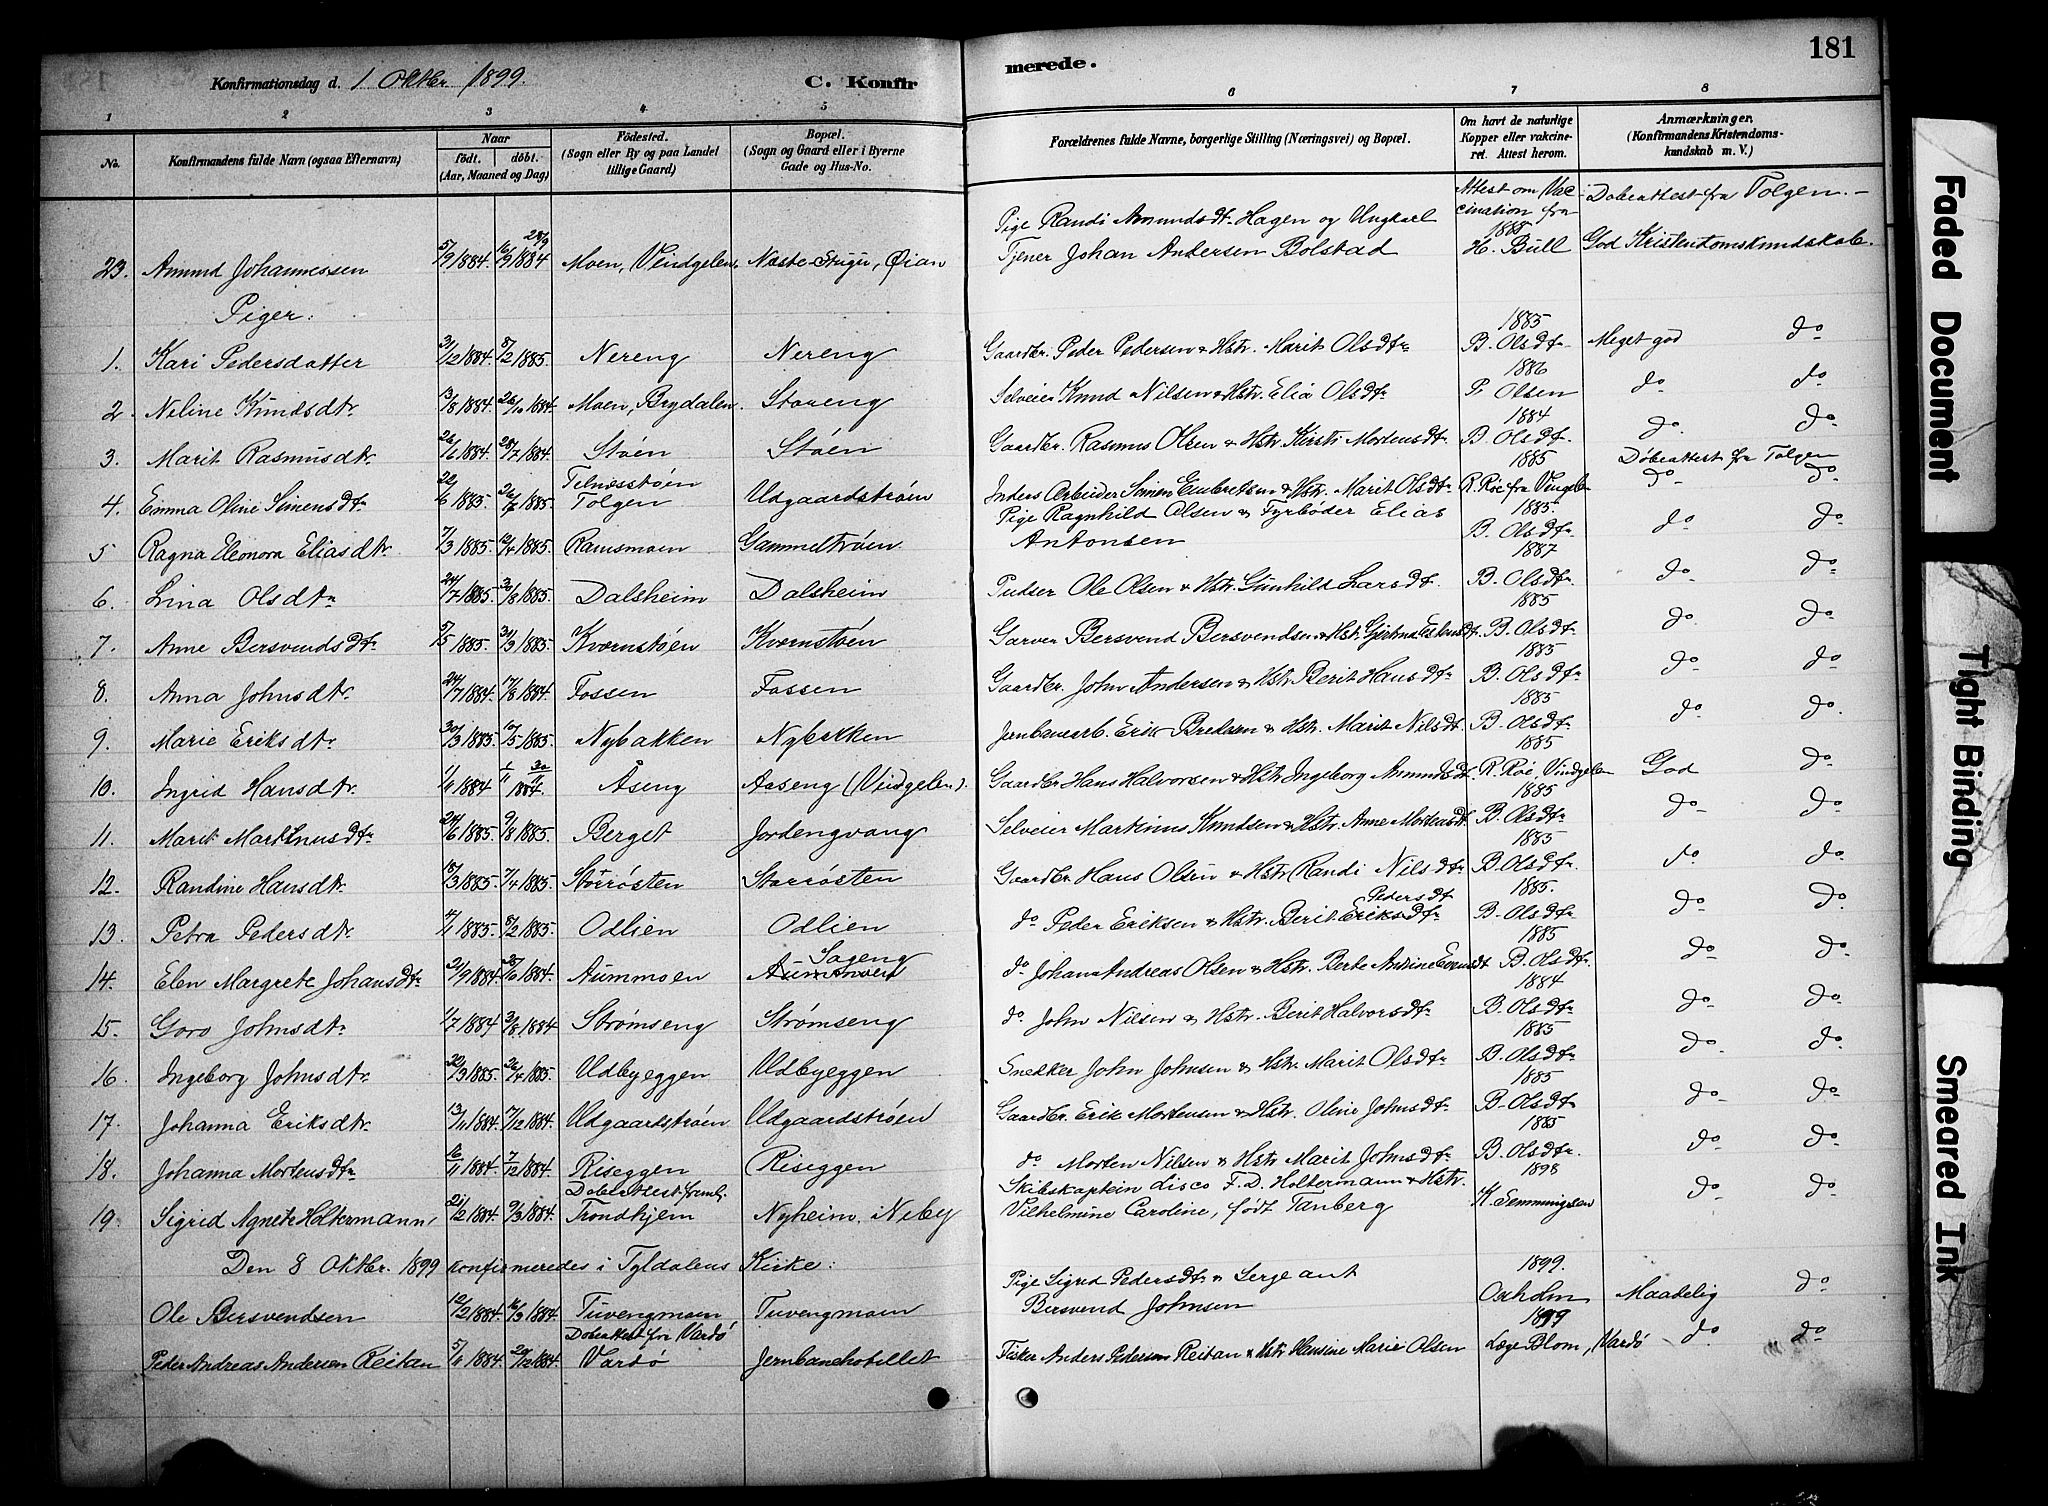 181
Konfirmationsdag d. 1 Oktbr. 1899.
C. Konfirmerede.
1 2 3 4 5 6 7 8
No. Konfirmandens fulde Navn (ogsaa Efternavn) Naar født. døbt. (Aar, Maaned og Dag) Fødested. (Sogn eller By og paa Landet tillige Gaard) Bopæl. (Sogn og Gaard eller i Byerne Gade og Hus-No. Forældrenes fulde Navne, borgerlige Stilling (Næringsvei) og Bopæl. Om havt de naturlige Kopper eller vakcineret. Attest herom. Anmærkninger. (Konfirmandens Kristendomskundskab m. V.)
Pige Randi Amundsdtr. Hagen og Ungkarl Attest om Vaccination fra 1885 Døbeattest fra Tolgen. -
23. Amund Johannessen 5/9 1884. 16/9 28/9 1884 Moen, Vindgelen, Øian Tjener Johan Andersen Bolstad H. Bull God Kristendomskundskab.
Piger:
1. Kari Pedersdatter 31/12 1884. 8/2 1885. Nereng Nereng Gaardbr. Peder Pedersen & Hstr. Marit Olsdtr 1885 B. Olsdtr. Meget god do
2. Neline Knudsdtr. 13/8 1884. 26/10 1884. Moen, Brydalen. Støeng Selveier Knud Nilsen & Hstr. Elia Olsdtr 1886 P. Olsen do do
3. Marit Rasmusdtr. 26/6 1884. 28/7 1884. Støen Støen Gaardbr. Rasmus Olsen & Hstr. Kirsti Mortensdtr. 1884. B. Olsdtr. do. do
4. Emma Oline Simensdtr 22/6 1885. 26/7 1885. Telnesstøen Tolgen Udgaardstrøen Inders. Arbeider Simen Embretsen & Hstr. Marit Olsdtr. 1885 R. Røe fra Vingelen Døbeattest fra Tolgen do do
5. Ragna Eleonora Eliasdtr. 7/3 1885. 12/4 1885. Ramsmoen Gammeltrøen Pige Ragnhild Olsen & Fyrbøder Elias Antonsen 1885. B. Olsdtr. do do
6. Lina Olsdtr 24/7 1885. 30/8 1885. Dalsheim Dalsheim Pudser Ole Olsen & Hstr. Gunhild Larsdtr. 1887 B. Olsdtr. do do
7. Anne Bersvendsdtr. 5/5 1885. 31/3 1885. Kvernstøen Kvernstøen Garver Bersvend Bersvendsen & Hstr. 1885 B. Olsdtr do. do
8. Anna Johnsdtr. 24/7 1884. 17/8 1884. Fossen Fossen Gaardbr. John Andersen & Hstr. Berit Hansdtr. 1885 B. Olsdtr do do
9. Marie Eriksdtr. 30/3 1885. 10/5 1885. Nybakken Nybakken Jernbanearb. Erik Bredesen & Hstr. Marit Nilsdtr. 1885 B. Olsdtr do do.
10. Ingrid Hansdtr. 1/11 1884 1/11 30/11 1884. Åseng Aaseng (Vindgelen). Gaardbr. Hans Halvorsen & Hstr. Ingeborg Amundsdtr. 1885 R. Røe, Vindgelen God do
11. Marit Martinusdtr 24/6 1885. 9/8 1885. Berget Jordengvang Selveier Martinus Knudsen & Hstr. Anne Mortensdtr 1885 B. Olsdtr. do do
12. Randine Hansdtr. 18/3 1885. 7/4 1885. Storrøsten Storrøsten Gaardbr. Hans Olsen & Hstr. Randi Nilsdtr. 1885 B. Olsdtr. do do
13. Petra Pedersdtr. 4/1 1885. 8/2 1885. Odlien Odlien do Peder Eriksen & Hstr. Berit Eriksdtr Pedersdt 1885. B. Olsdtr do do
14. Elen Margrete Johansdtr. 21/9 1884. 1884. Aummoen Aummoen Sageng do. Johan Andreas Olsen & Hstr. Berte Andrine Evensdt 1885 B. Olsdtr. do do.
15. Goro Johnsdtr. 1/7 1884 3/8 1884 Strømseng Strømseng do. John Nilsen & Hstr. Berit Halvorsdtr 1884 B. Olsdtr do do
16. Ingeborg Johnsdtr. 22/3 1885. 26/4 1885. Udbyeggen Udbyeggen Snedker John Johnsen & Hstr. Marit Olsdtr. 1885 B. Olsdtr do do
17. Johanna Eriksdtr. 13/11 1884. 7/12 1884. Udgaardstrøen Udgaardstrøen Gaardbr. Erik Mortensen & Hstr. Oline Johnsdtr. 1885 B. Olsdtr do do
18. Johanna Mortensdtr 16/11 1884. 7/12 1884. Riseggen Riseggen do Morten Nilsen & Hstr Marit Johnsdtr. 1885 B. Olsdtr. do do.
19. Sigrid Agnete Holtermann, 21/2 1884. 9/3 1884. Døbeattest freml. Trondhjem Nyheim, Neby Skibskaptein disco F. D. Holtermann & Hstr. Vilhelmine Caroline, født Tanberg 1898 K. Semmingsen do do
Den 8 Oktbr. 1899 konfirmeredes i Tyldalens Kirke:
Ole Bersvendsen 12/2 1884. 16/3 1884. Tuvengmoen Tuvengmoen Pige Sigrid Pedersdtr. & Sergeant Bersvend Johnsen 1899. Oxholm Maadelig do
Peder Andreas Andersen Reitan 5/11 1884. 1884. Døbeattest fra Vardø Vardø Jernbanehotellet Fisker Anders Pedersen Reitan & Hstr. Hansine Marie Olsen 1899 Læge Blom, Vardø do do
Faded Document
Tight Binding
Smeared Ink